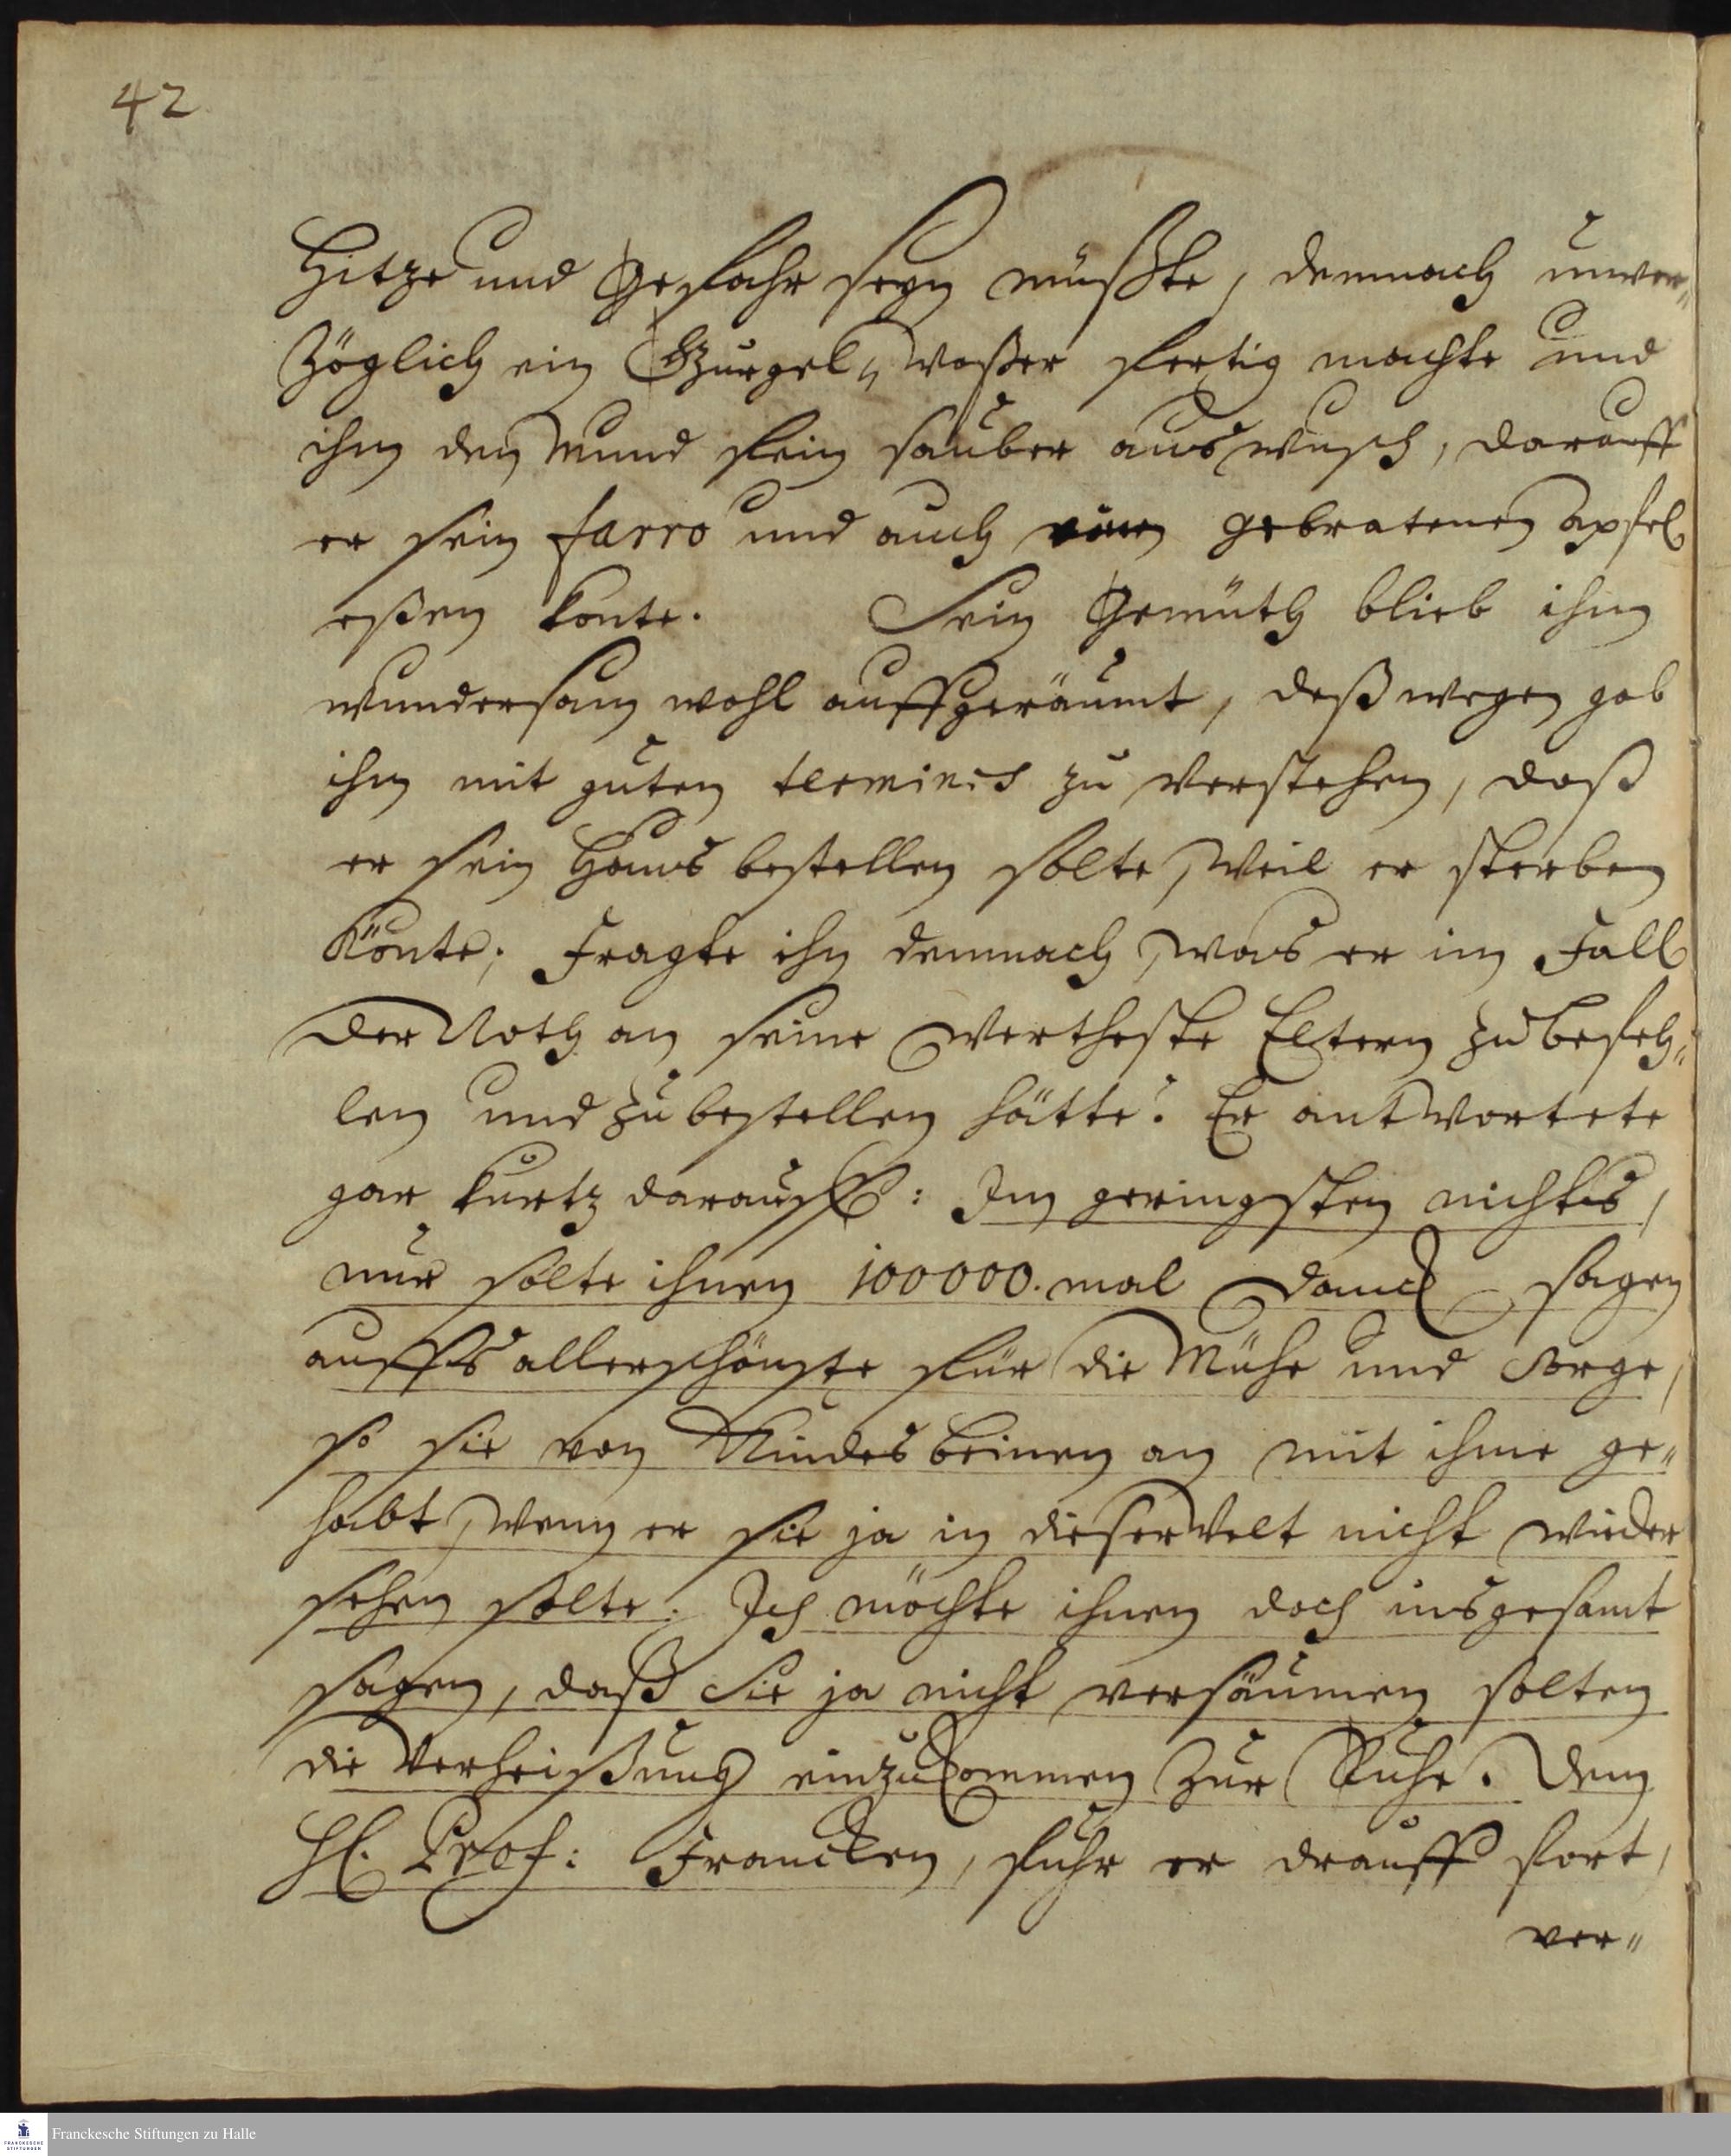 42
Hitze und Gefahr seyn müßte, demnach unver„
Zöglich ein Gurgel„Waßer fertig machte und
ihm den Mund fein sauber auswusch, darauff
er sein farro und auch einen gebratenen Apfel
eßen konte. Sein Gemüth blieb ihm
wundersam wohl auffgeräumt, deßwegen gab
ihm mit guten terminis zu verstehen, daß
er sein Haus bestellen solte, Weil er sterben
Könte; Fragte ihn demnach, was er im Fall
der Noth an seine Wertheste Eltern zu befeh„
len und zu bestellen hätte? Er antwortete
gar kurtz darauff: Im geringsten nichts,
nur solte ihnen 100000. mal Danck sagen
auffs allerschönste für die Mühe und Sorge,
so sie von Kindesbeinen an mit ihme ge„
habt, Wenn er sie ja in dieser Welt nicht wieder
sehen solte. Ich möchte ihnen doch insgesamt
sagen, daß Sie ja nicht versäumen solten
die Verheißung einzukommen zur Ruhe. Dem
H. Prof: Francken, fuhr er drauff fort,
ver„
Franckesche Stiftungen zu Halle